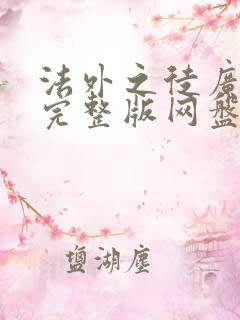 法外之徒廣
完整版网盘
盐湖尘